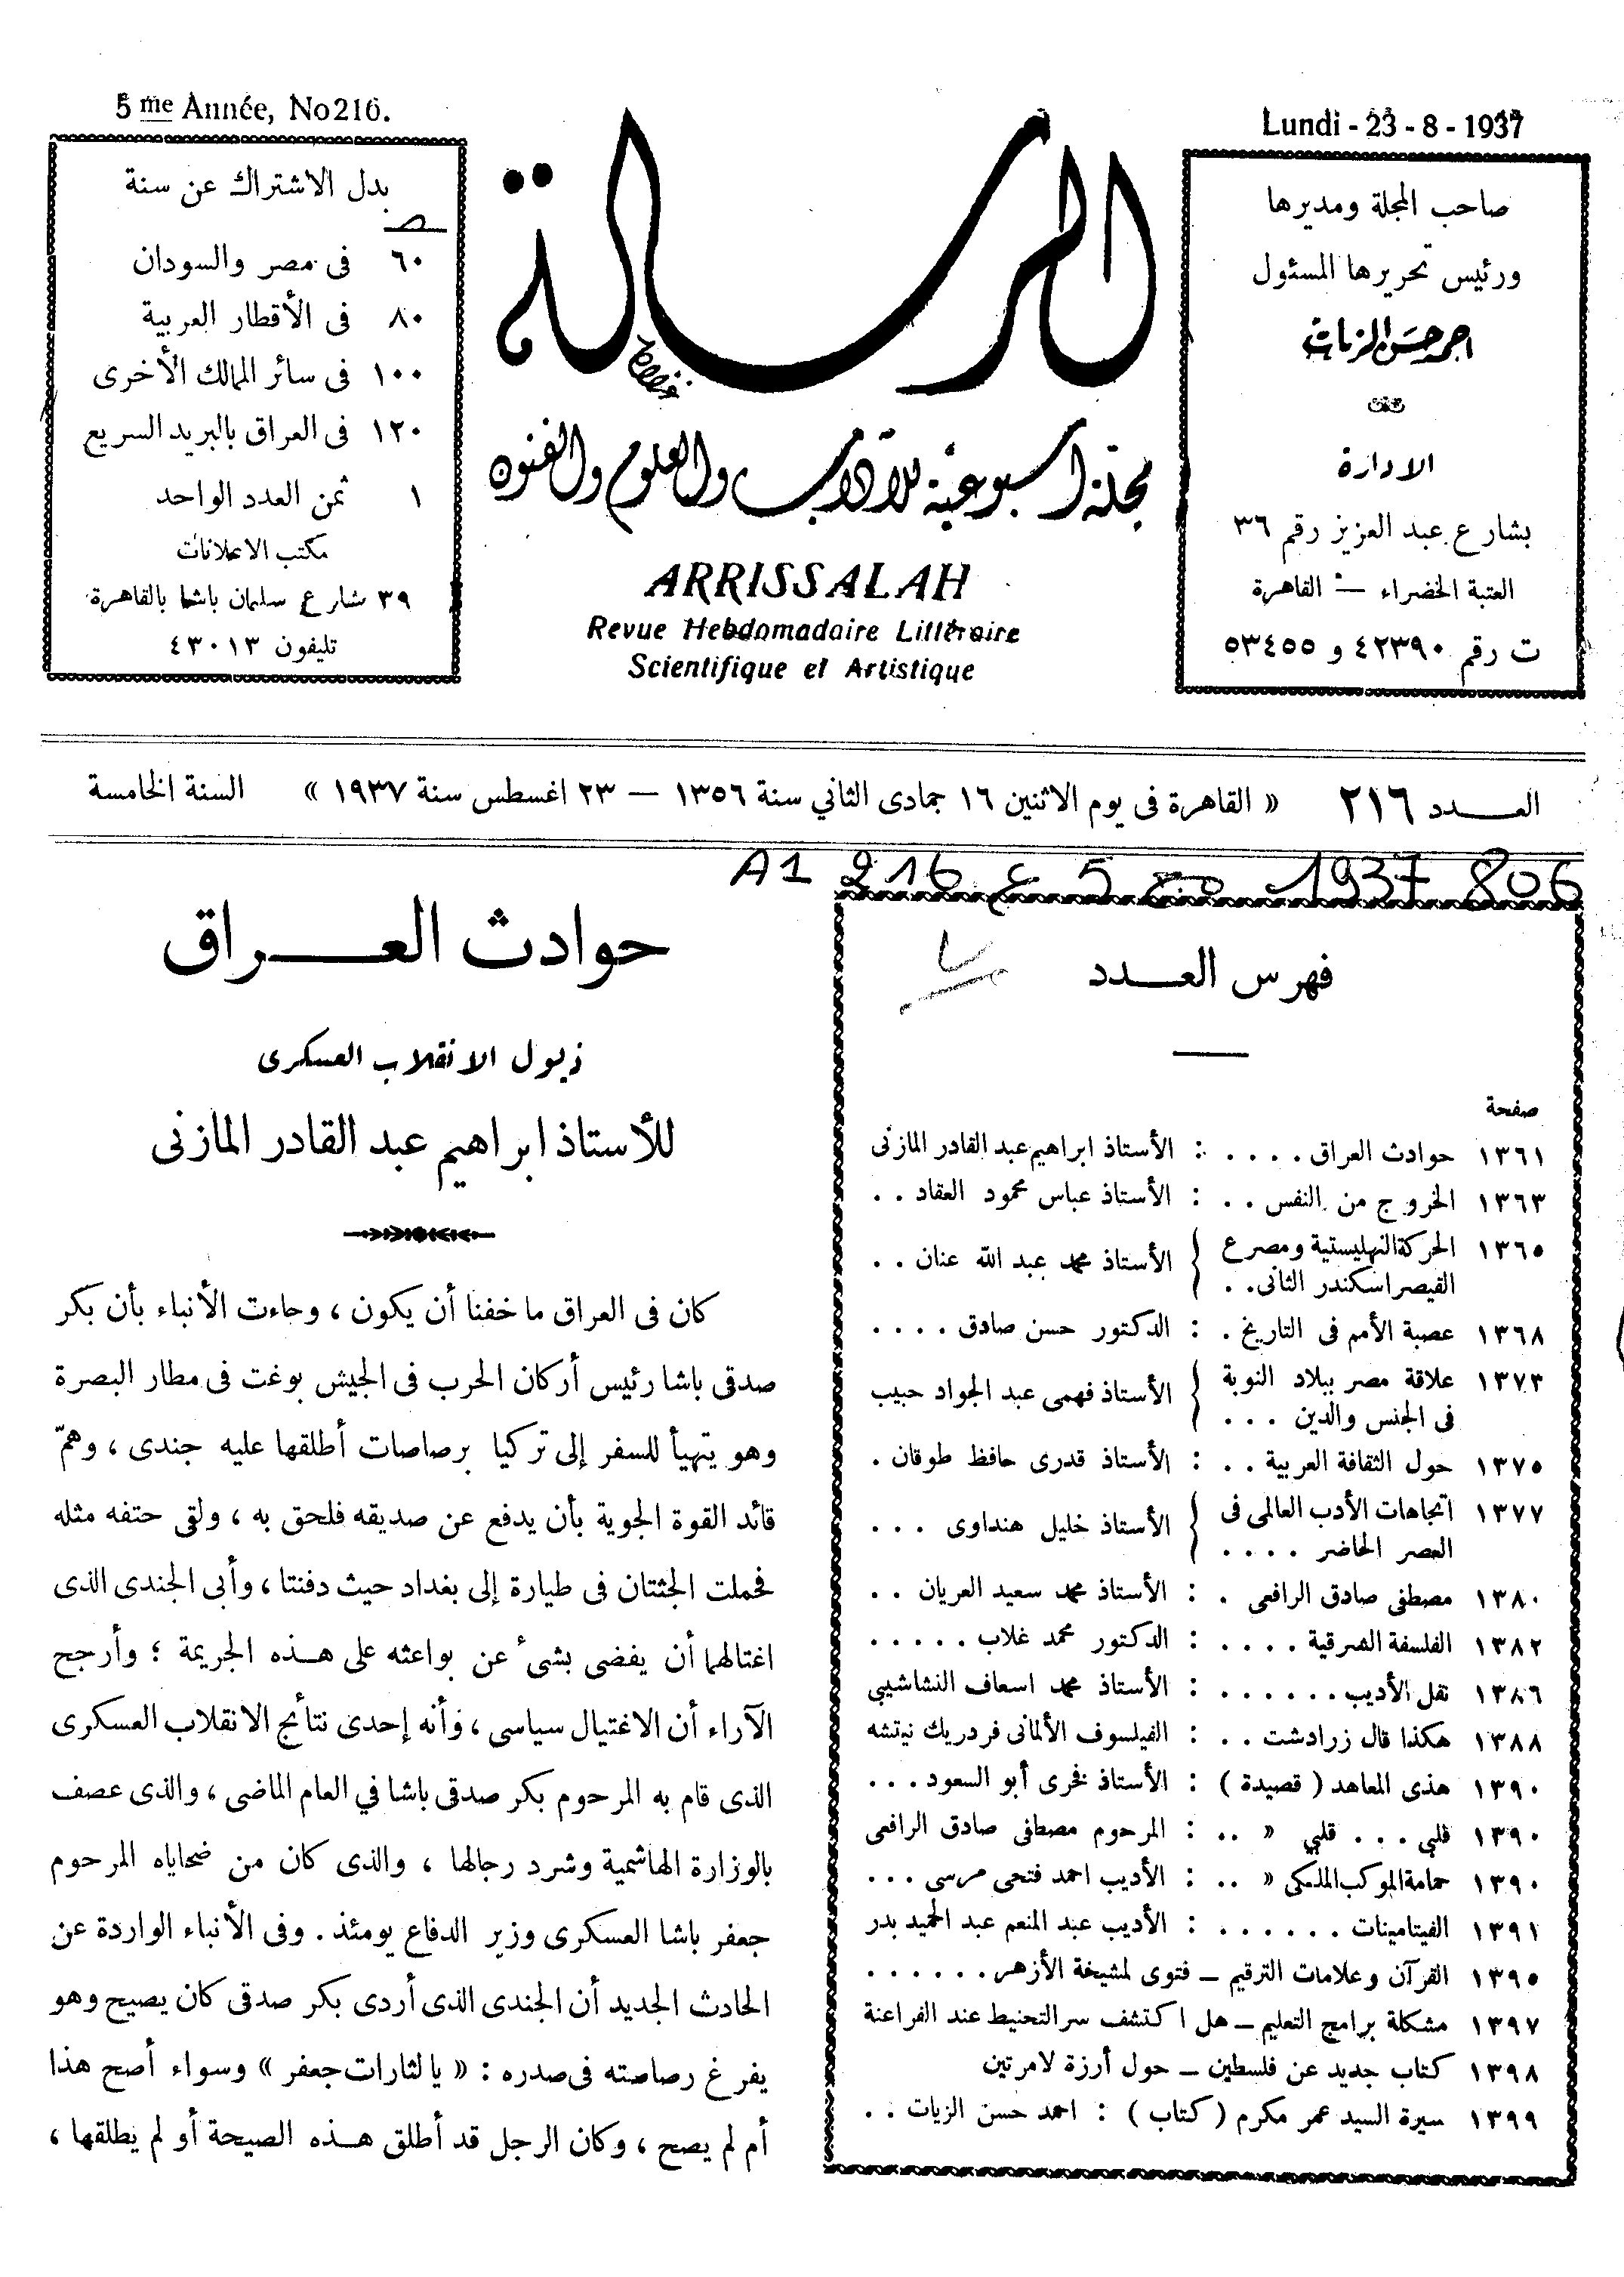 5me Année, No 216.
Lundi - 23 - 8 - 1937
صاحب المجلة ومديرها
ورئيس تحريرها المسئول
احمد حسن الزيات
الادارة
بشارع عبد العزيز رقم ٣٦
العتبة الخضراء — القاهرة
ت رقم ٤٢٣٩٠ و ٥٣٤٥٥
الرسالة
مجلة أسبوعية للآداب والعلوم والفنون
ARRISSALAH
Revue Hebdomadaire Littéraire
Scientifique et Artistique
بدل الاشتراك عن سنة
ص
٦٠ فى مصر والسودان
٨٠ فى الأقطار العربية
١٠٠ فى سائر الممالك الأخرى
١٢٠ فى العراق بالبريد السريع
١ ثمن العدد الواحد
مكتب الاعلانات
٣٩ شارع سليمان باشا بالقاهرة
تليفون ٤٣٠١٣
العـــدد ٢١٦ « القاهرة فى يوم الاثنين ١٦ جمادى الثاني سنة ١٣٥٦ — ٢٣ اغسطس سنة ١٩٣٧ » السنة الخامسة
A1 216 ع 5 مج 1937 806
فهرس العـــدد
صفحة
١٣٦١ حوادث العراق . . . . : الأستاذ ابراهيم عبد القادر المازنى
١٣٦٣ الخروج من النفس . . : الأستاذ عباس محمود العقاد . .
١٣٦٥ الحركة النهليستية ومصرع
القيصر اسكندر الثانى. . } الأستاذ محمد عبد الله عنان . .
١٣٦٨ عصبة الأمم فى التاريخ . : الدكتور حسن صادق . . . .
١٣٧٣ علاقة مصر ببلاد النوبة
فى الجنس والدين . . . } الأستاذ فهمى عبد الجواد حبيب
١٣٧٥ حول الثقافة العربية . . : الأستاذ قدرى حافظ طوقان .
١٣٧٧ اتجاهات الأدب العالمى فى
العصر الحاضر . . . . } الأستاذ خليل هنداوى . . .
١٣٨٠ مصطفى صادق الرافعى . : الأستاذ محمد سعيد العريان . .
١٣٨٢ الفلسفة الشرقية . . . . : الدكتور محمد غلاب . . . . .
١٣٨٦ نقل الأديب . . . . . . : الأستاذ محمد اسعاف النشاشيبى
١٣٨٨ هكذا قال زرادشت . . : الفيلسوف الألمانى فردريك نيتشه
١٣٩٠ هذى المعاهد ( قصيدة ) : الأستاذ فخرى أبو السعود . . .
١٣٩٠ قلبي . . . قلبي « .. : المرحوم مصطفى صادق الرافعى
١٣٩٠ حمامة الموكب الملكى « .. : الأديب احمد فتحى مرسى . . .
١٣٩١ الفيتامينات . . . . . . : الأديب عبد المنعم عبد الحميد بدر
١٣٩٥ القرآن وعلامات الترقيم — فتوى لمشيخة الأزهر . . . . . .
١٣٩٧ مشكلة برامج التعليم — هل اكتشف سر التحنيط عند الفراعنة
١٣٩٨ كتاب جديد عن فلسطين — حول أرزة لامرتين
١٣٩٩ سيرة السيد عمر مكرم ( كتاب ) : احمد حسن الزيات . .
حوادث العـــراق
ذيول الانقلاب العسكرى
للأستاذ ابراهيم عبد القادر المازنى
كان فى العراق ما خفنا أن يكون ، وجاءت الأنباء بأن بكر
صدقى باشا رئيس أركان الحرب فى الجيش بوغت فى مطار البصرة
وهو يتهيأ للسفر إلى تركيا برصاصات أطلقها عليه جندى ، وهمّ
قائد القوة الجوية بأن يدفع عن صديقه فلحق به ، ولقى حتفه مثله
فحملت الجثتان فى طيارة إلى بغداد حيث دفنتا ، وأبى الجندى الذى
اغتالهما أن يفضى بشىء عن بواعثه على هـذه الجريمة ؛ وأرجح
الآراء أن الاغتيال سياسى ، وأنه إحدى نتائج الانقلاب العسكرى
الذى قام به المرحوم بكر صدقى باشا في العام الماضى ، والذى عصف
بالوزارة الهاشمية وشرد رجالها ، والذى كان من ضحاياه المرحوم
جعفر باشا العسكرى وزير الدفاع يومئذ . وفى الأنباء الواردة عن
الحادث الجديد أن الجندى الذى أردى بكر صدقى كان يصيح وهو
يفرغ رصاصته فى صدره : « يا لثارات جعفر » وسواء أصح هذا
أم لم يصح ، وكان الرجل قد أطلق هـذه الصيحة أو لم يطلقها ،